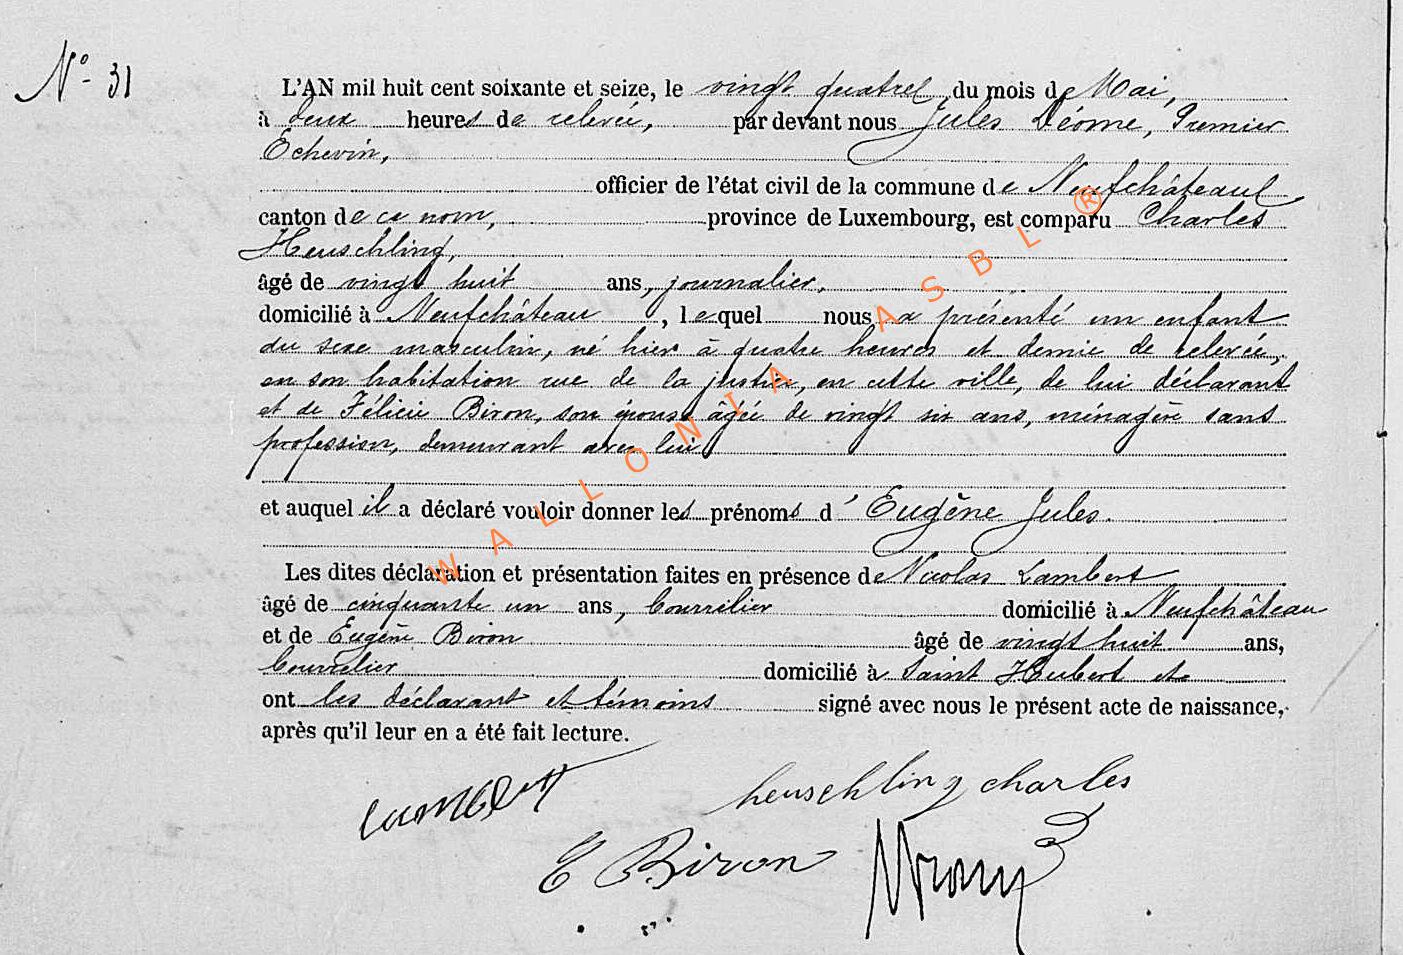 N° 31
L'AN mil huit cent soixante et seize, le vingt quatre, du mois de Mai,
à deux heures de relevée, par devant nous Jules Déome, Premier
Echevin,
officier de l'état civil de la commune de Neufchâteau
canton de ce nom, province de Luxembourg, est comparu Charles
Heuschling,
âgé de vingt huit ans, journalier,
domicilié à Neufchâteau, lequel nous a présenté un enfant
du sexe masculin, né hier à quatre heures et demie de relevée,
en son habitation rue de la justice, en cette ville, de lui déclarant
et de Félicie Biron, son épouse âgée de vingt six ans, ménagère sans
profession, demeurant avec lui
et auquel il a déclaré vouloir donner les prénoms d' Eugène Jules.
Les dites déclaration et présentation faites en présence de Nicolas Lambert
âgé de cinquante un ans, bourrelier domicilié à Neufchâteau
et de Eugène Biron âgé de vingt huit ans,
bourrelier domicilié à Saint Hubert et
ont les déclarant et témoins signé avec nous le présent acte de naissance,
après qu'il leur en a été fait lecture.
Lambert heuschling charles
E Biron
WALLONIA ASBL ®